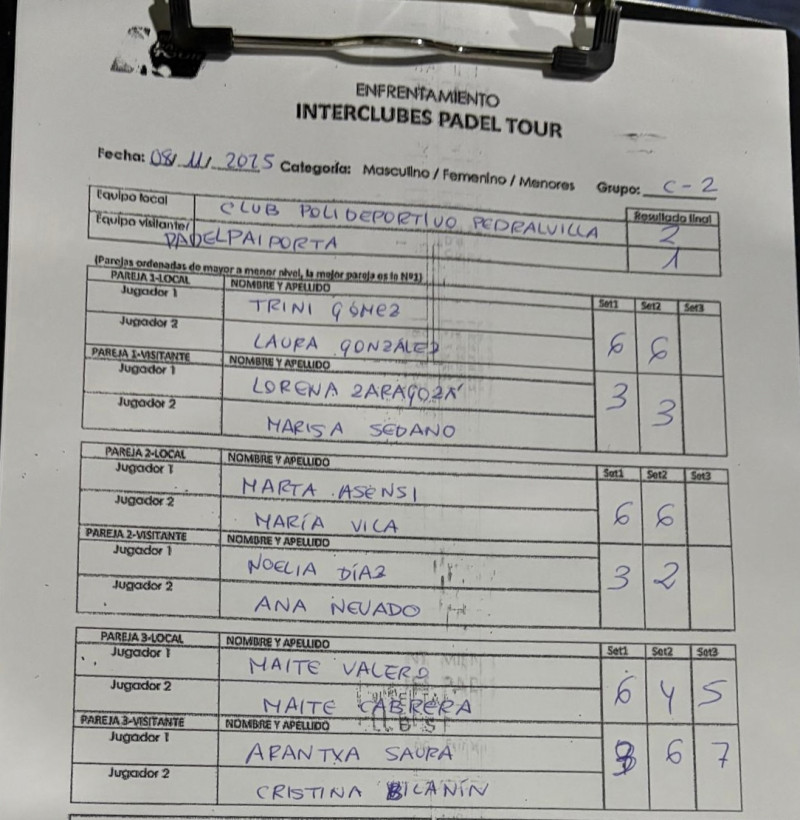 ENFRENTAMIENTO
INTERCLUBES PADEL TOUR
Fecha: 08/11/2025 Categoría: Masculino / Femenino / Menores Grupo: C-2
Equipo local CLUB POLIDEPORTIVO PEDRALVILLA Resultado final 2
Equipo visitante/ PADELPAIPORTA 1
(Parejas ordenadas de mayor a menor nivel, la mejor pareja es la Nº1)
PAREJA 1-LOCAL NOMBRE Y APELLIDO Set1 Set2 Set3
Jugador 1 TRINI GÓMEZ
Jugador 2 LAURA GONZÁLEZ 6 6
PAREJA 1-VISITANTE NOMBRE Y APELLIDO
Jugador 1 LORENA ZARAGOZÁ 3 3
Jugador 2 MARISA SEDANO
PAREJA 2-LOCAL NOMBRE Y APELLIDO Set1 Set2 Set3
Jugador 1 MARTA ASENSI
Jugador 2 MARÍA VILA 6 6
PAREJA 2-VISITANTE NOMBRE Y APELLIDO
Jugador 1 NOELIA DÍAZ 3 2
Jugador 2 ANA NEVADO
PAREJA 3-LOCAL NOMBRE Y APELLIDO Set1 Set2 Set3
Jugador 1 MAITE VALERO
Jugador 2 MAITE CABRERA 6 4 5
PAREJA 3-VISITANTE NOMBRE Y APELLIDO
Jugador 1 ARANTXA SAURA 6 7
Jugador 2 CRISTINA